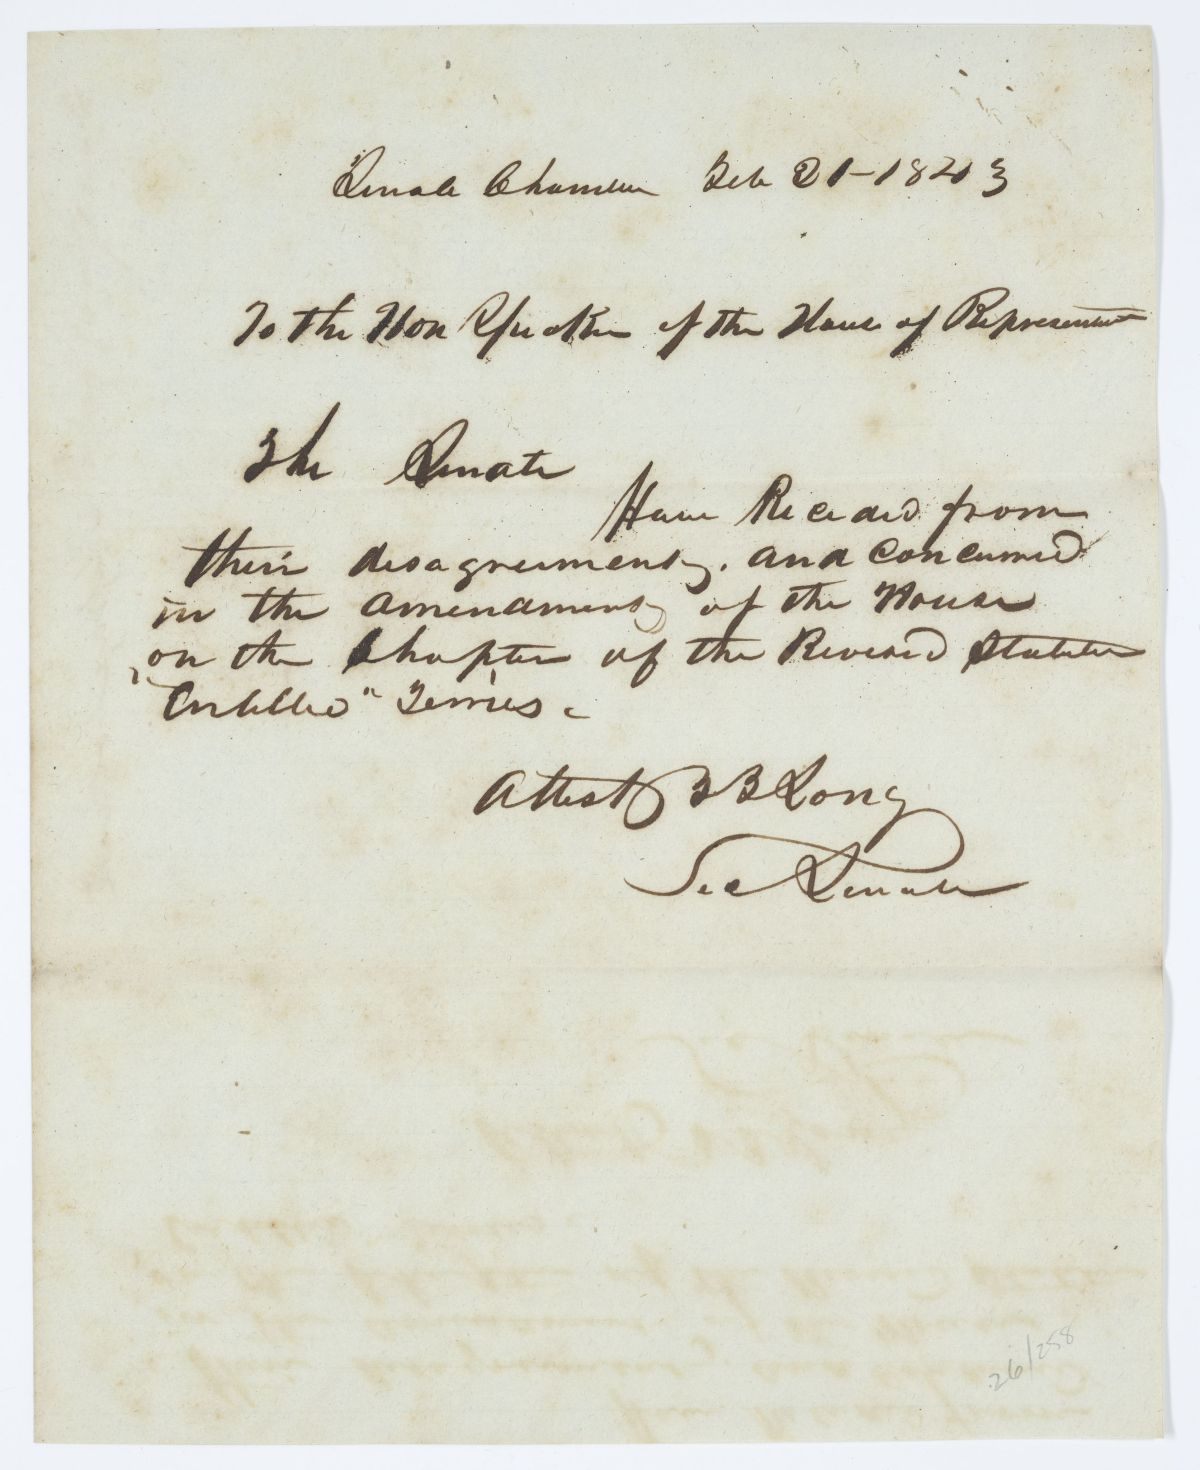 Senate Chamber Feb 21-1843
To the Hon Speaker of the House of Representat
The Senate
Have Receded from
their disagreements, and Concurred
in the amendments of the House
on the Chapter of the Revised Statutes
"Entitled" Ferries.
Attest B B Long
Sec Senate
26/258